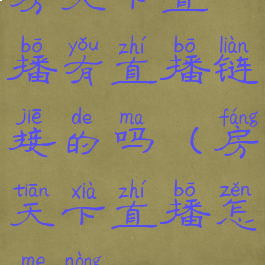 房天下直
bō yǒu zhí bō liàn
播有直播链
jiē de ma fáng
接的吗（房
tiān xià zhí bō zěn
天下直播怎
me nòng